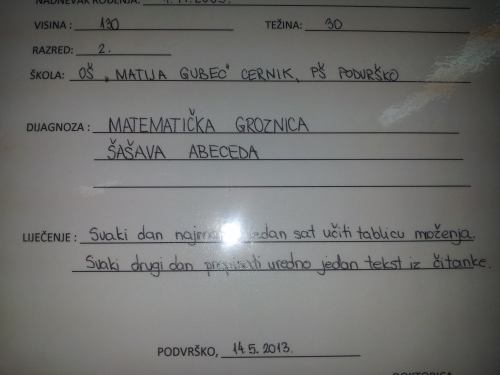 NADNEVAK ROĐENJA:
VISINA : 130 TEŽINA: 30
RAZRED: 2.
ŠKOLA: OŠ „MATIJA GUBEC" CERNIK, PŠ PODVRŠKO
DIJAGNOZA : MATEMATIČKA GROZNICA
ŠAŠAVA ABECEDA
LIJEČENJE : Svaki dan jedan sat učiti tablicu moženja.
Svaki drugi dan prepisati uredno jedan tekst iz čitanke.
PODVRŠKO, 14.5.2013.
DOKTORICA